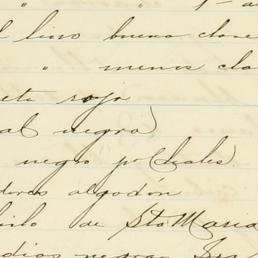 " " 1ª
lino buena clase
" menos cla
eta rojo
al negro
negro pª chales
dores algodón
hilo de Sto Maria
dios negro